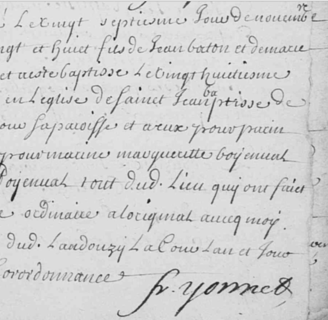 Le vingt septiesme Jour de novenbre
ngt et huict fils de Jean baton et de marie
et a este baptisse Le vingt huitiesme
en Leglise de Sainct Jean baptisse de
sa paroisse et a eux pour parin
pour marine marguerite boyenual
boyenual tout dud. Lieu quy ont faict
ordinaire a Loriginal avecq moy
dud. Landouzy La Cour Lan et Jour
ordonnance fr. yonnet